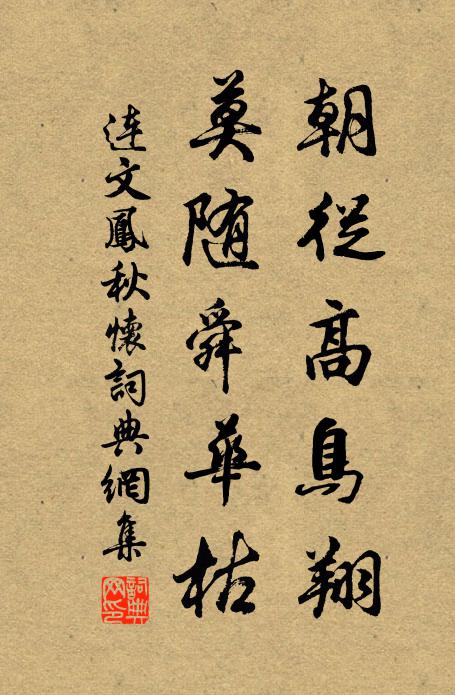 朝從高鳥翔
莫随舜華枯
連文鳳秋懷詞典網集
詞典網印